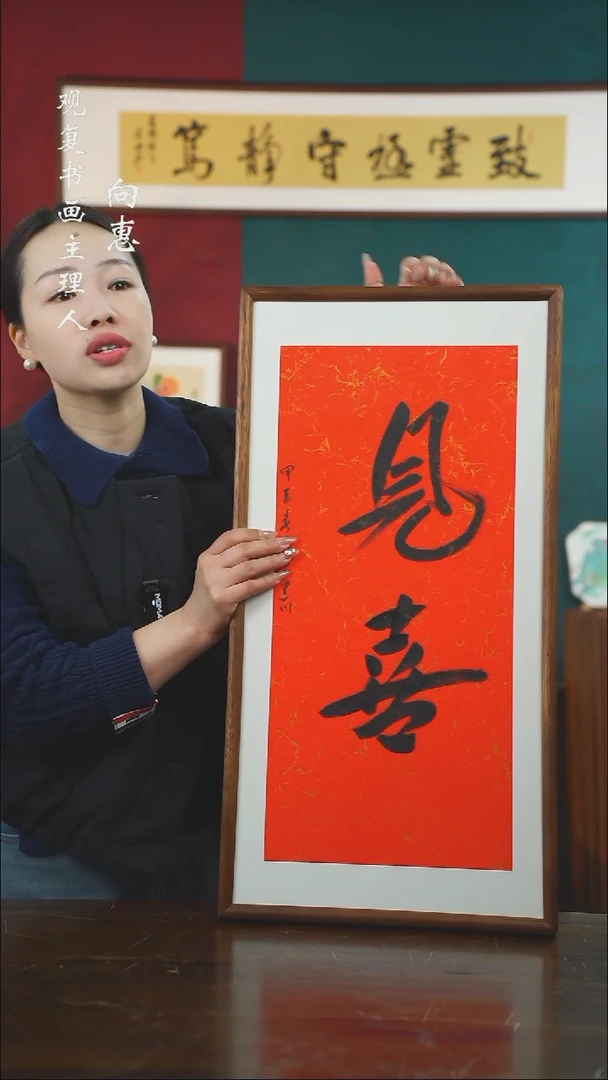 观复书画主理人
向惠
致虚極守静篤
見喜
甲辰春